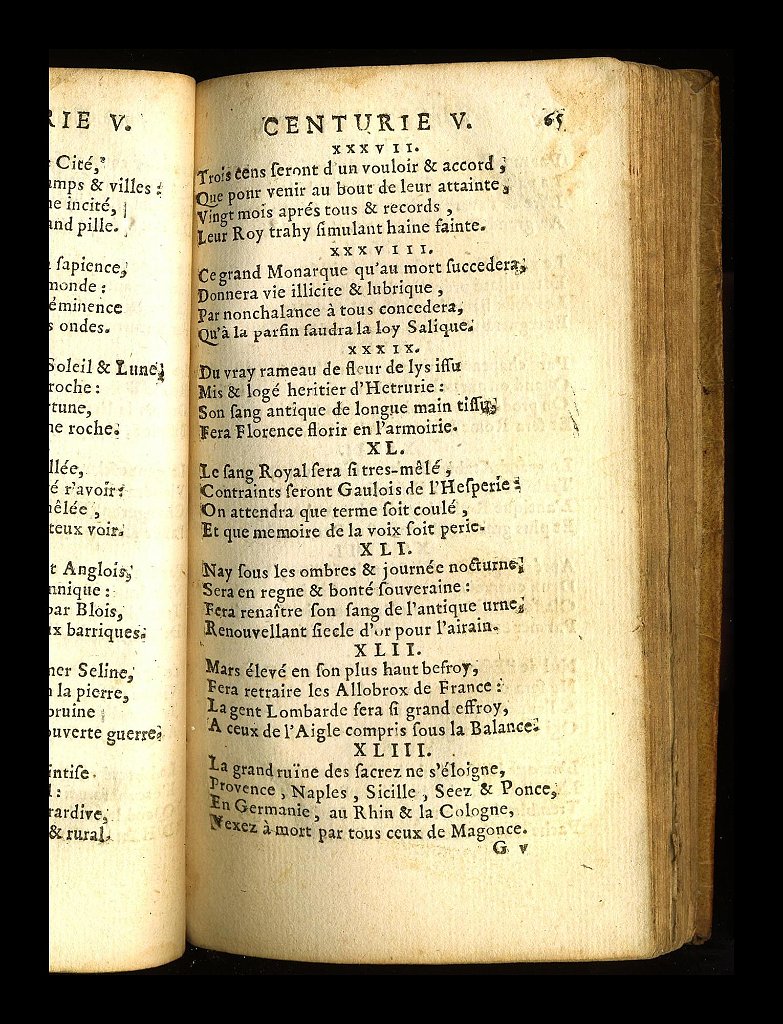 RIE V.
Cité,
amps & villes :
ne incité,
and pille.
ſapience,
monde :
éminence
s ondes.
Soleil & Lune,
roche :
rtune,
ne roche.
llée,
é r'avoir :
mêlée ,
teux voir.
t Anglois,
nnique :
par Blois,
ux barriques.
mer Seline,
n la pierre,
bruine
ouverte guerre.
intiſe.
l :
rardive,
& rural.
CENTURIE V. 65
XXXVII.
Trois cens ſeront d'un vouloir & accord ,
Que pour venir au bout de leur attainte ,
Vingt mois aprés tous & records ,
Leur Roy trahy ſimulant haine fainte.
XXXVIII.
Ce grand Monarque qu'au mort ſuccedera,
Donnera vie illicite & lubrique ,
Par nonchalance à tous concedera,
Qu'à la parfin faudra la loy Salique.
XXXIX.
Du vray rameau de fleur de lys iſſu
Mis & logé heritier d'Hetrurie :
Son ſang antique de longue main tiſſu,
Fera Florence florir en l'armoirie.
XL.
Le ſang Royal ſera ſi tres-mêlé ,
Contraints ſeront Gaulois de l'Heſperie :
On attendra que terme ſoit coulé ,
Et que memoire de la voix ſoit perie.
XLI.
Nay ſous les ombres & journée nocturne,
Sera en regne & bonté ſouveraine :
Fera renaître ſon ſang de l'antique urne,
Renouvellant ſiecle d'or pour l'airain.
XLII.
Mars élevé en ſon plus haut befroy,
Fera retraire les Allobrox de France :
La gent Lombarde fera ſi grand effroy,
A ceux de l'Aigle compris ſous la Balance.
XLIII.
La grand ruïne des ſacrez ne s'éloigne,
Provence , Naples , Sicille , Seez & Ponce,
En Germanie , au Rhin & la Cologne,
Vexez à mort par tous ceux de Magonce.
G v